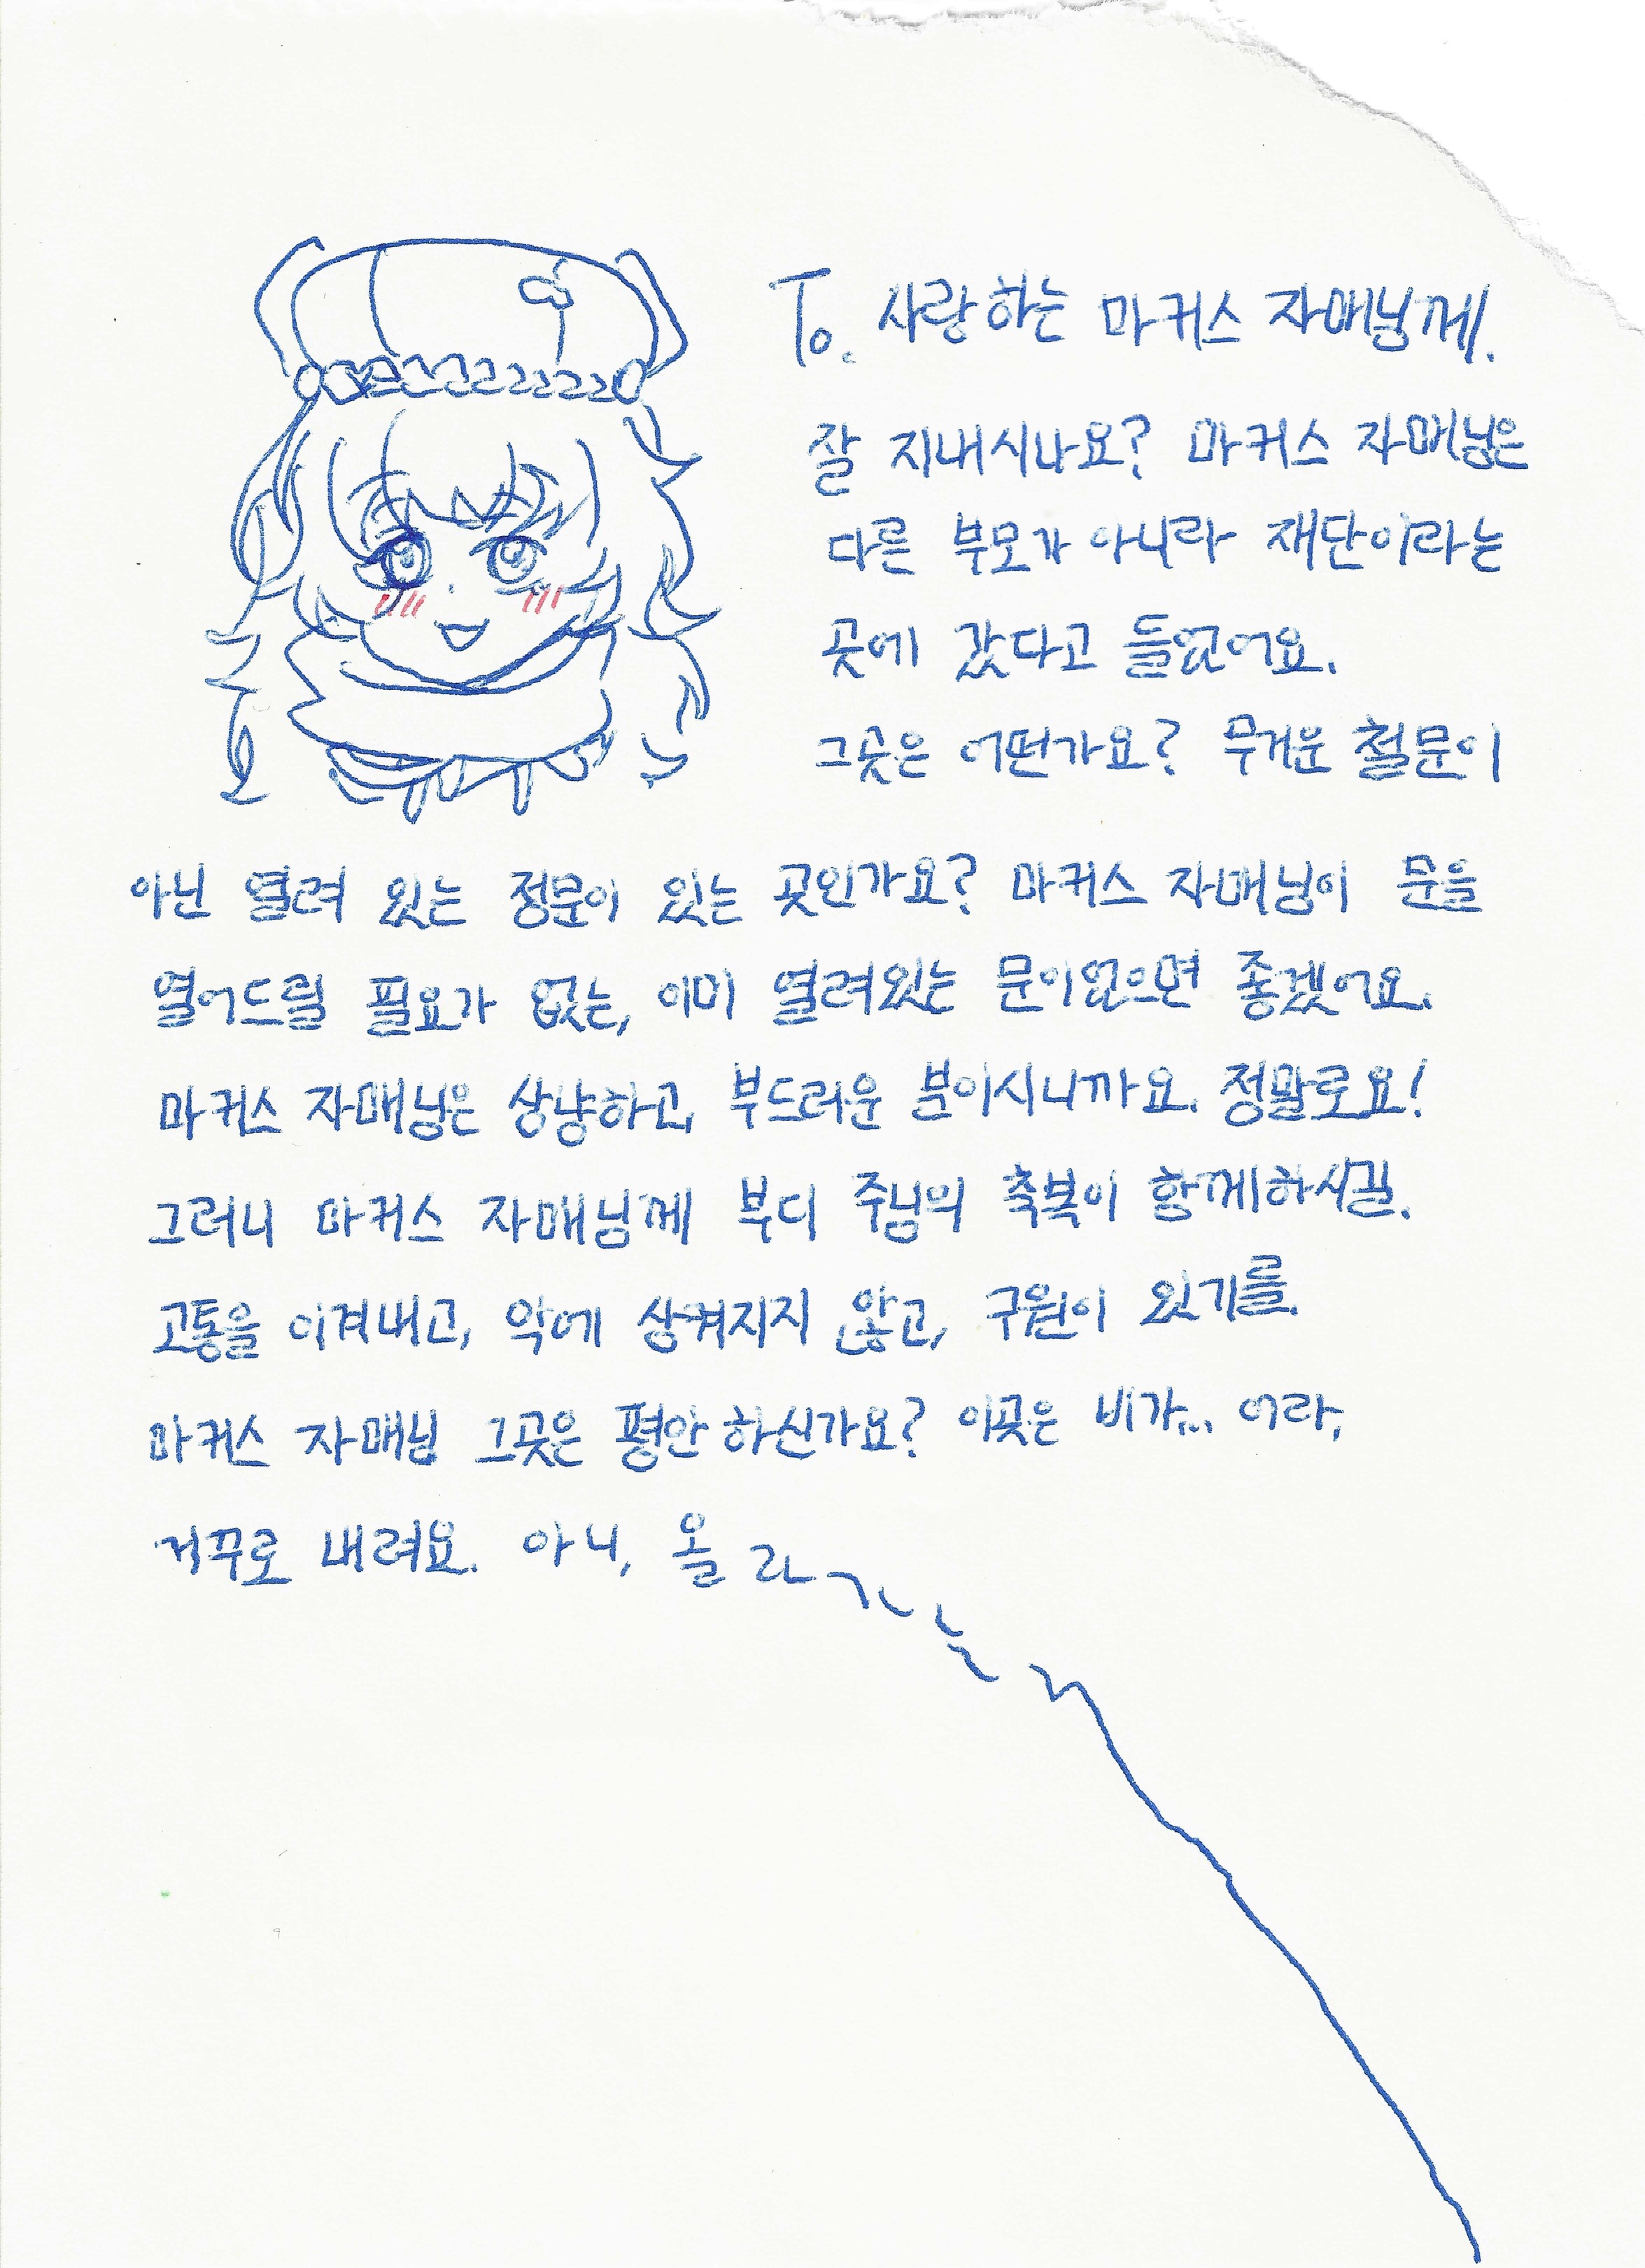 To. 사랑하는 마커스 자매님께.
잘 지내시나요? 마커스 자매님은
다른 부모가 아니라 재단이라는
곳에 갔다고 들었어요.
그곳은 어떤가요? 무거운 철문이
아닌 열려 있는 정문이 있는 곳인가요? 마커스 자매님이 문을
열어드릴 필요가 없는, 이미 열려있는 문이었으면 좋겠어요.
마커스 자매님은 상냥하고, 부드러운 분이시니까요. 정말로요!
그러니 마커스 자매님께 부디 주님의 축복이 함께하시길.
고통을 이겨내고, 악에 삼켜지지 않고, 구원이 있기를.
마커스 자매님 그곳은 평안하신가요? 이곳은 비가... 어라,
거꾸로 내려요. 아니, 올라